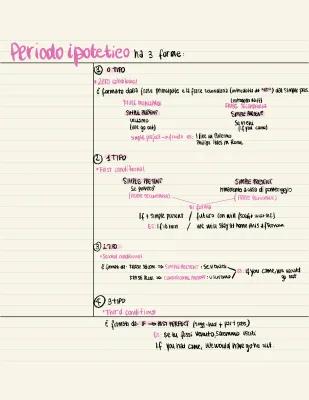 Periodo ipotetico ha 3 forme:
① 0 TIPO
• ZERO conditional
È formato dalla frase principale e la frase secondaria (introdotta da "if") del simple pres
FRASE PRINCIPALE
introdotta da if
FRASE SECONDARIA
SIMPLE PRESENT
SIMPLE PRESENT
usciamo
Se vieni
(we go out)
(if you come)
simple present → infinito es: I live in Palermo
Philip lives in Rome
② 1 TIPO
• First conditional
SIMPLE PRESENT
SIMPLE PRESENT
Se piove
rimaniamo a casa di pomeriggio
(FRASE SECONDARIA)
(FRASE PRINCIPALE)
si forma
If + simple present / future con will
Es: if it rain / we will stay at home this afternoon
③ 2 TIPO
• Second conditional
if you come, we would
go out
④ 3 TIPO
• Third conditional
È formato da: IF → PAST PERFECT (sogg + had + part. pass)
Es: se tu fossi venuto, saremmo usciti
If you had came, we would have gone out.